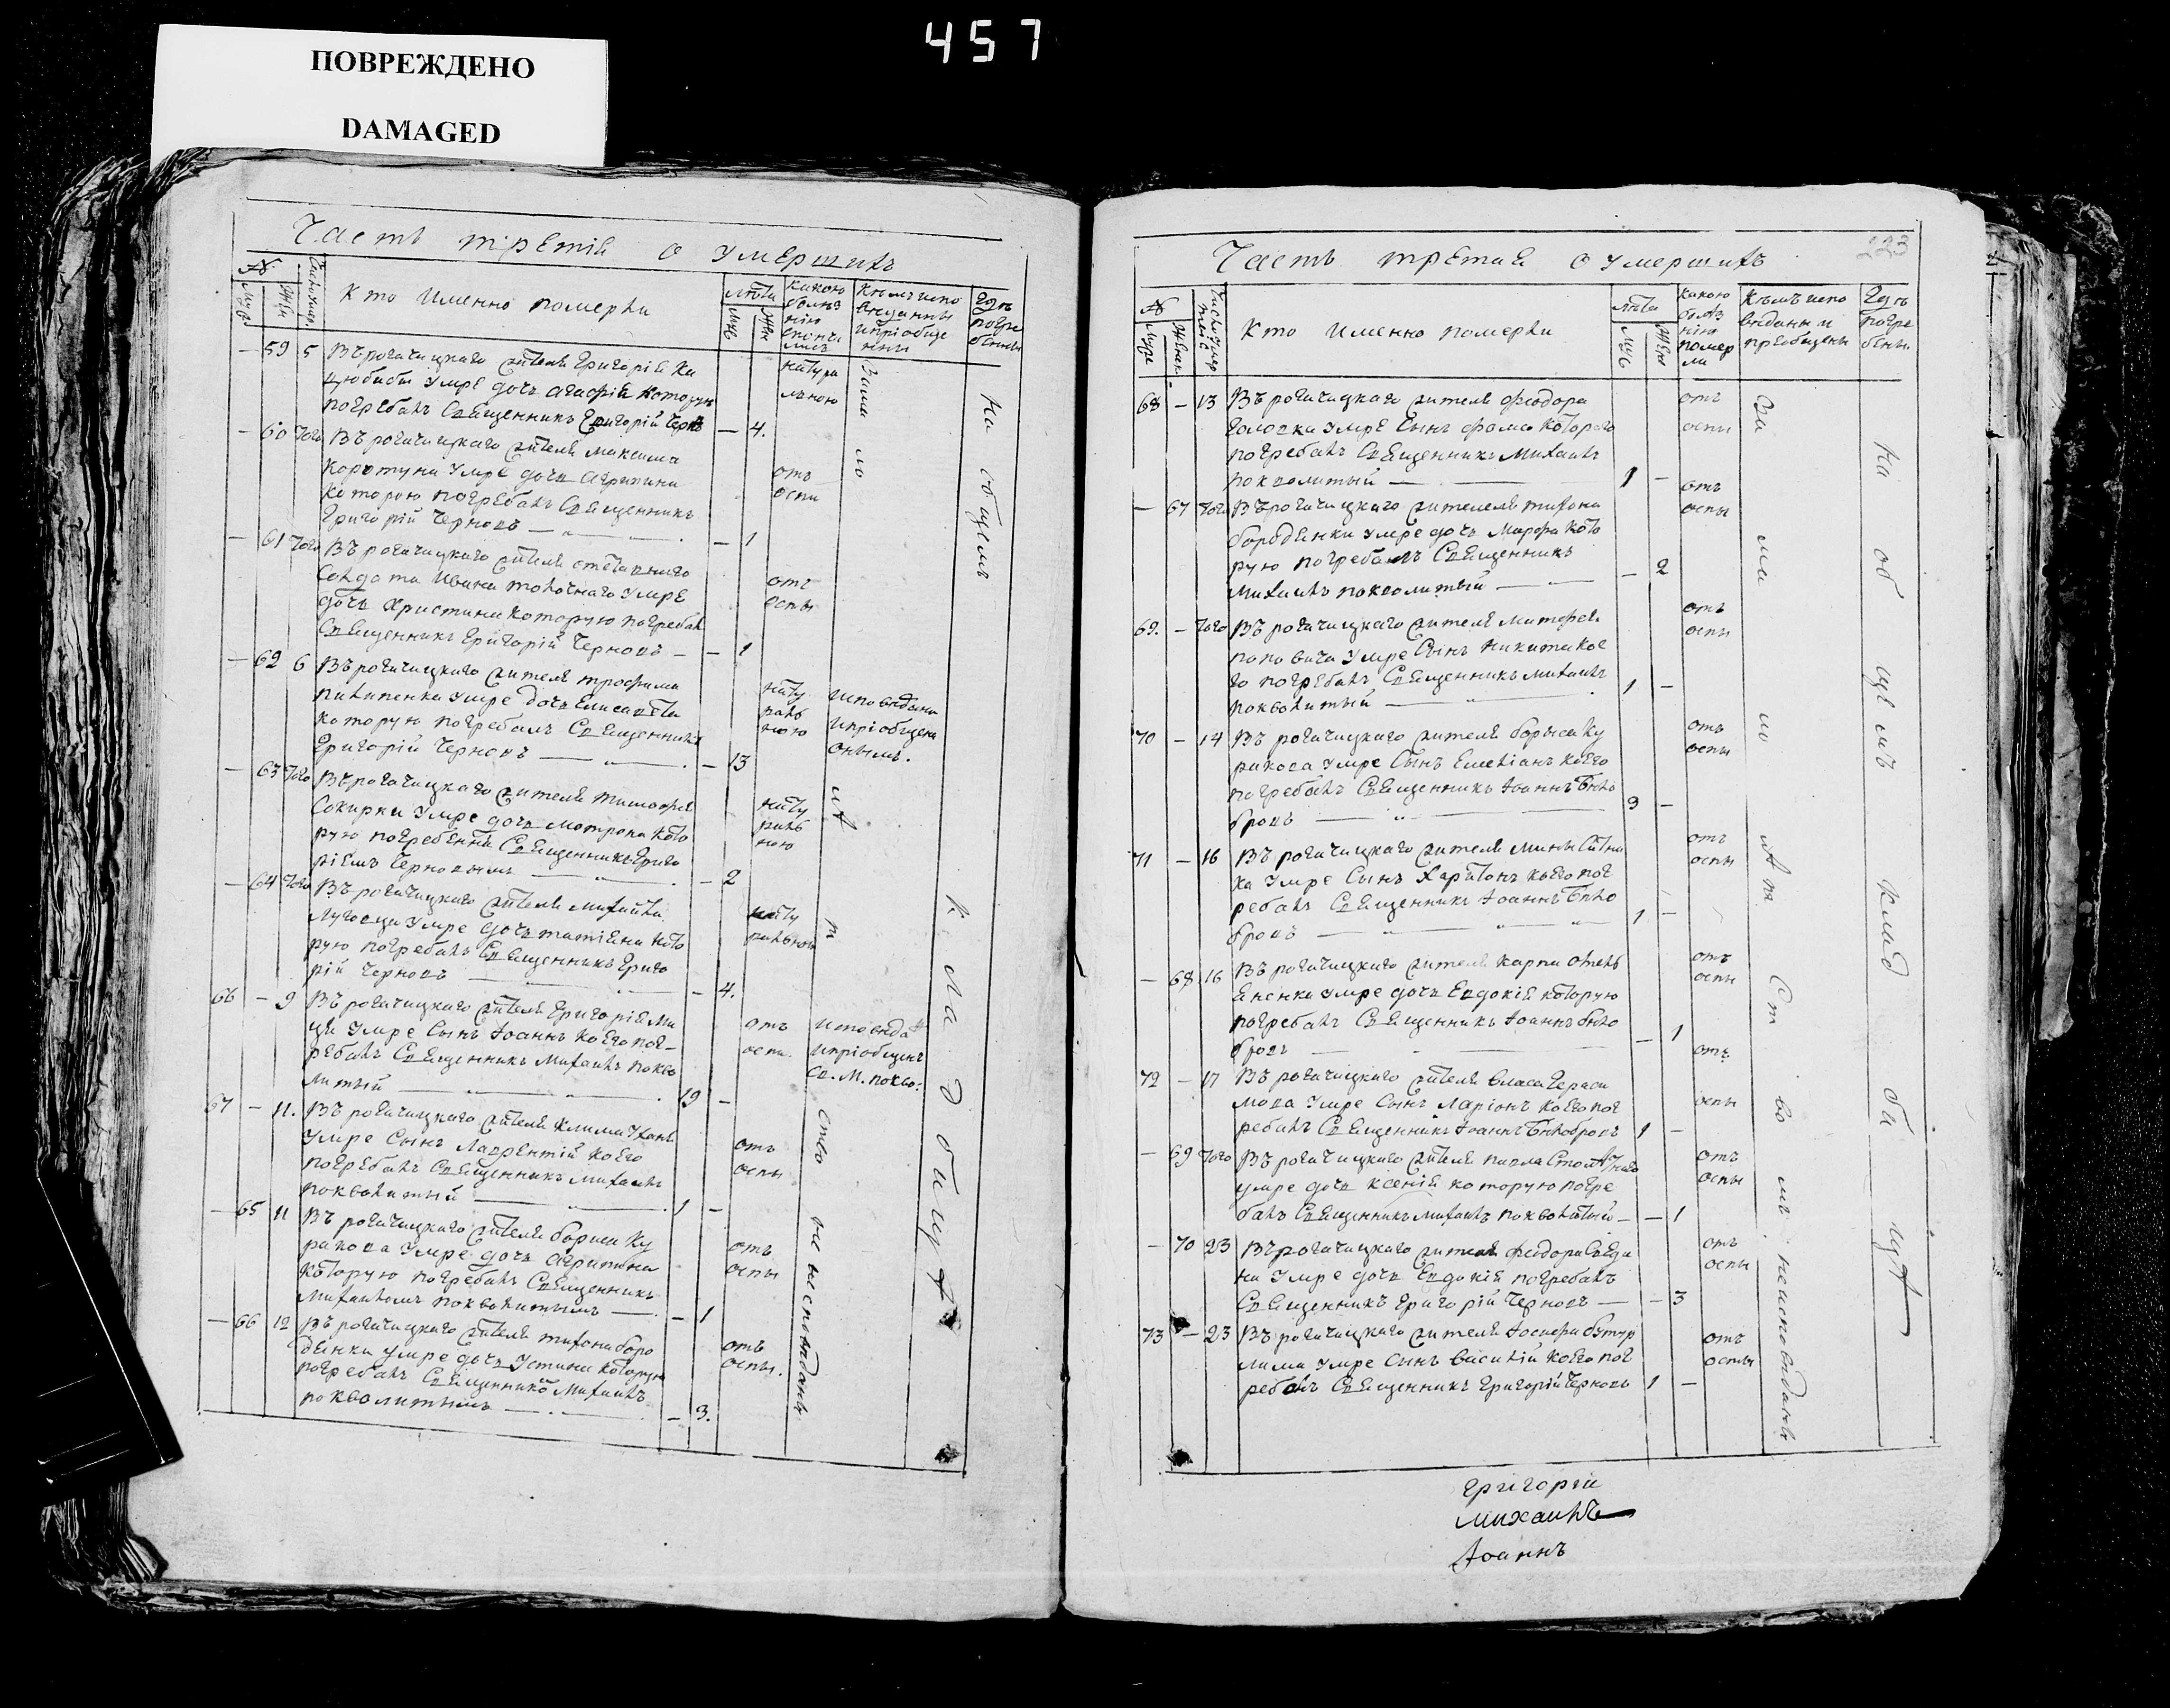 457
ПОВРЕЖДЕНО
DAMAGED
Часть третія о умершихъ
№
Муж
Жен
Число умер.
Кто именно померли
лѣта
Муж
Жен
какою
болѣз
нію
скончи
лись
Кѣмъ испо
вѣданны
и пріобще
нны
Гдѣ
погре
бенны
— 59 5 Въ рогачицкаго жителя Григорія Ка
умре дочь Агафія которую
погребалъ Священникъ Григорій Черновъ — 4.
натура
льною
— 60 Того Въ рогачицкаго жителя Максима
Коротуна умре дочь Агрипина
которою погребалъ Священникъ
Григорій Черновъ — 1
отъ
оспи
— 61 Того Въ рогачицкаго жителя отставнаго
Солдата Ивана Толочнаго умре
дочь Христина которую погребалъ
Священникъ Григорій Черновъ — — 1
отъ
оспы
— 62 6 Въ рогачицкаго жителя Трофима
Пилипенка умре дочь Елисавета
которую погребалъ Священникъ
Григорій Черновъ — — 13
нату
раль
ною
исповѣдана
и пріобщена
онымъ.
— 63 Того Въ рогачицкаго жителя Тимофея
Сокирки умре дочь Мотрона кото
рую погребенна Священникъ Григо
ріемъ Черновымъ — — 2
нату
раль
ною
— 64 Того Въ рогачицкаго жителя Михайла
Луговца умре дочь Татіяна кото
рую погребалъ Священникъ Григо
рій Черновъ — — 4.
нату
ральною
66 — 9 Въ рогачицкаго жителя Григорія Ми
ци умре Сынъ Іоаннъ коего пог-
ребалъ Священникъ Михаилъ Покво
литый — 19 —
отъ
оспи.
исповѣда
и пріобщенъ
Св. М. Покво:
67 — 11. Въ рогачицкаго жителя Клима
умре Сынъ Лаврентій коего
погребалъ Священникъ Михаилъ
Покволитый — 1 —
отъ
оспы
— 65 11 Въ рогачицкаго жителя Бориса Ку
ракова умре дочь Агрипина
которую погребалъ Священникъ
Михаиломъ Покволитымъ — — 1
отъ
оспы
— 66 12 Въ рогачицкаго жителя Тихона Боро
денки умре дочь Устина которую
погребалъ Священникъ Михаилъ
Покволитымъ — — 3.
отъ
оспы.
За ма ло лѣт ство не исповѣданы
На общемъ кладбищѣ
223
Часть третія о умершихъ
№
Муже
Женс
Число умер
Кто именно померли
лѣта
Муж
Жен
какою
болѣз
нію
помер
ли
Кѣмъ испо
вѣданы и
пріобщены
Гдѣ
погре
бены
68 — 13 Въ рогачицкаго жителя Феодора
Головка умре Сынъ Фома которого
погребалъ Священникъ Михаилъ
Покволитый — 1 —
отъ
оспы
— 67 Того Въ рогачицкаго жителя Тихона
Бороденки умре дочь Марфа кото
рую погребалъ Священникъ
Михаилъ Покволитый — — 2
отъ
оспы
69. — Того Въ рогачицкаго жителя Матофея
Поповича умре Сынъ Никита кое
го погребалъ Священникъ Михаилъ
Покволитый — 1 —
отъ
оспы
70 — 14 Въ рогачицкаго жителя Борыса Ку
ракова умре Сынъ Емелianъ коего
погребалъ Священникъ Іоаннъ Бѣло
бровъ — 9 —
отъ
оспы
71 — 16 Въ рогачицкаго жителя Мины Ситни
ка умре Сынъ Харитонъ коего пог
ребалъ Священникъ Іоаннъ Бѣло
бровъ — 1 —
отъ
оспы
— 68 16 Въ рогачицкаго жителя Карпа Омель
яненка умре дочь Евдокія которую
погребалъ Священникъ Іоаннъ Бѣло
бровъ — — 1
отъ
оспы
72 — 17 Въ рогачицкаго жителя Власа Гераси
мова умре Сынъ Ларіонъ коего пог
ребалъ Священникъ Іоаннъ Бѣлобровъ 1 —
отъ
оспы
— 69 Того Въ рогачицкаго жителя Павла
умре дочь Ксенія которую погре
балъ Священникъ Михаилъ Покволитый — — 1
отъ
оспы
— 70 23 Въ рогачицкаго жителя Феодора
на умре дочь Евдокія погребалъ
Священникъ Григорій Черновъ — — 3
отъ
оспы
73 — 23 Въ рогачицкаго жителя Іосифа Бутур
лима умре Сынъ Василій коего пог
ребалъ Священникъ Григорій Черновъ 1 —
отъ
оспы
За ма ло лѣт ст во мъ неисповѣданы
На общемъ кладбищѣ
Григорій
Михаилъ
Іоаннъ